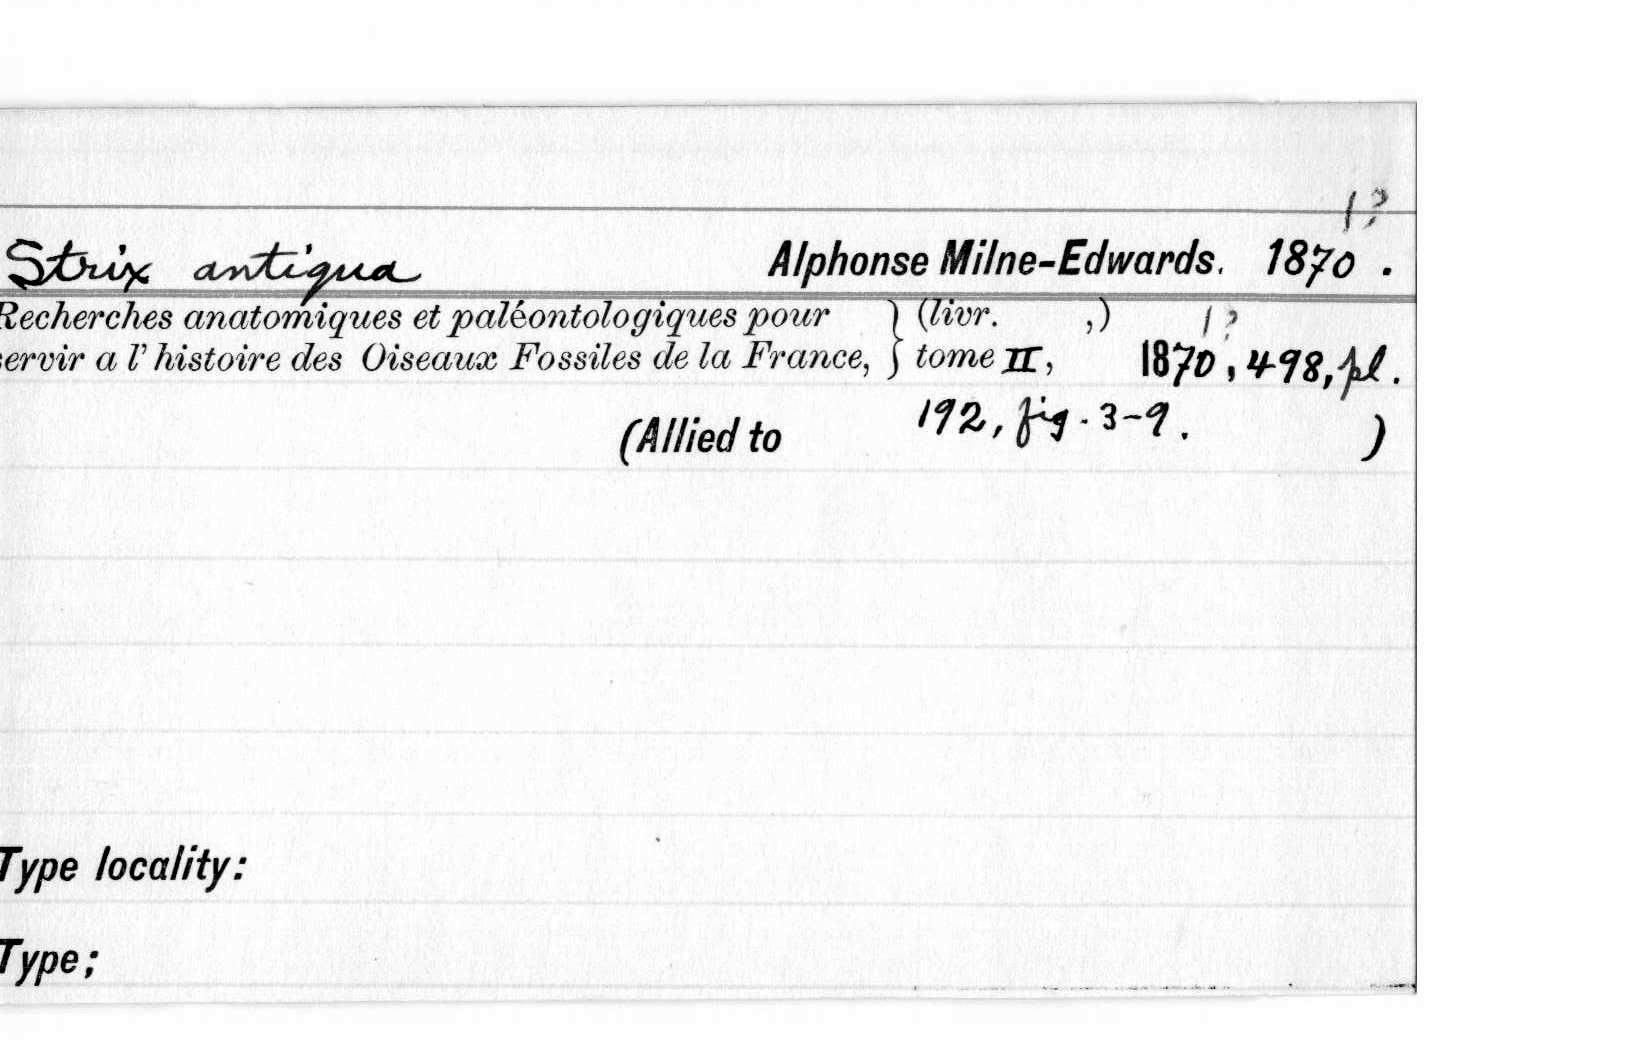 1?
Strix antiqua Alphonse Milne-Edwards. 1870.
Recherches anatomiques et paléontologiques pour } (livr. ,) 1?
servir a l'histoire des Oiseaux Fossiles de la France, } tome II, 1870, 498, pl.
192, fig. 3-9.
(Allied to )
Type locality:
Type;